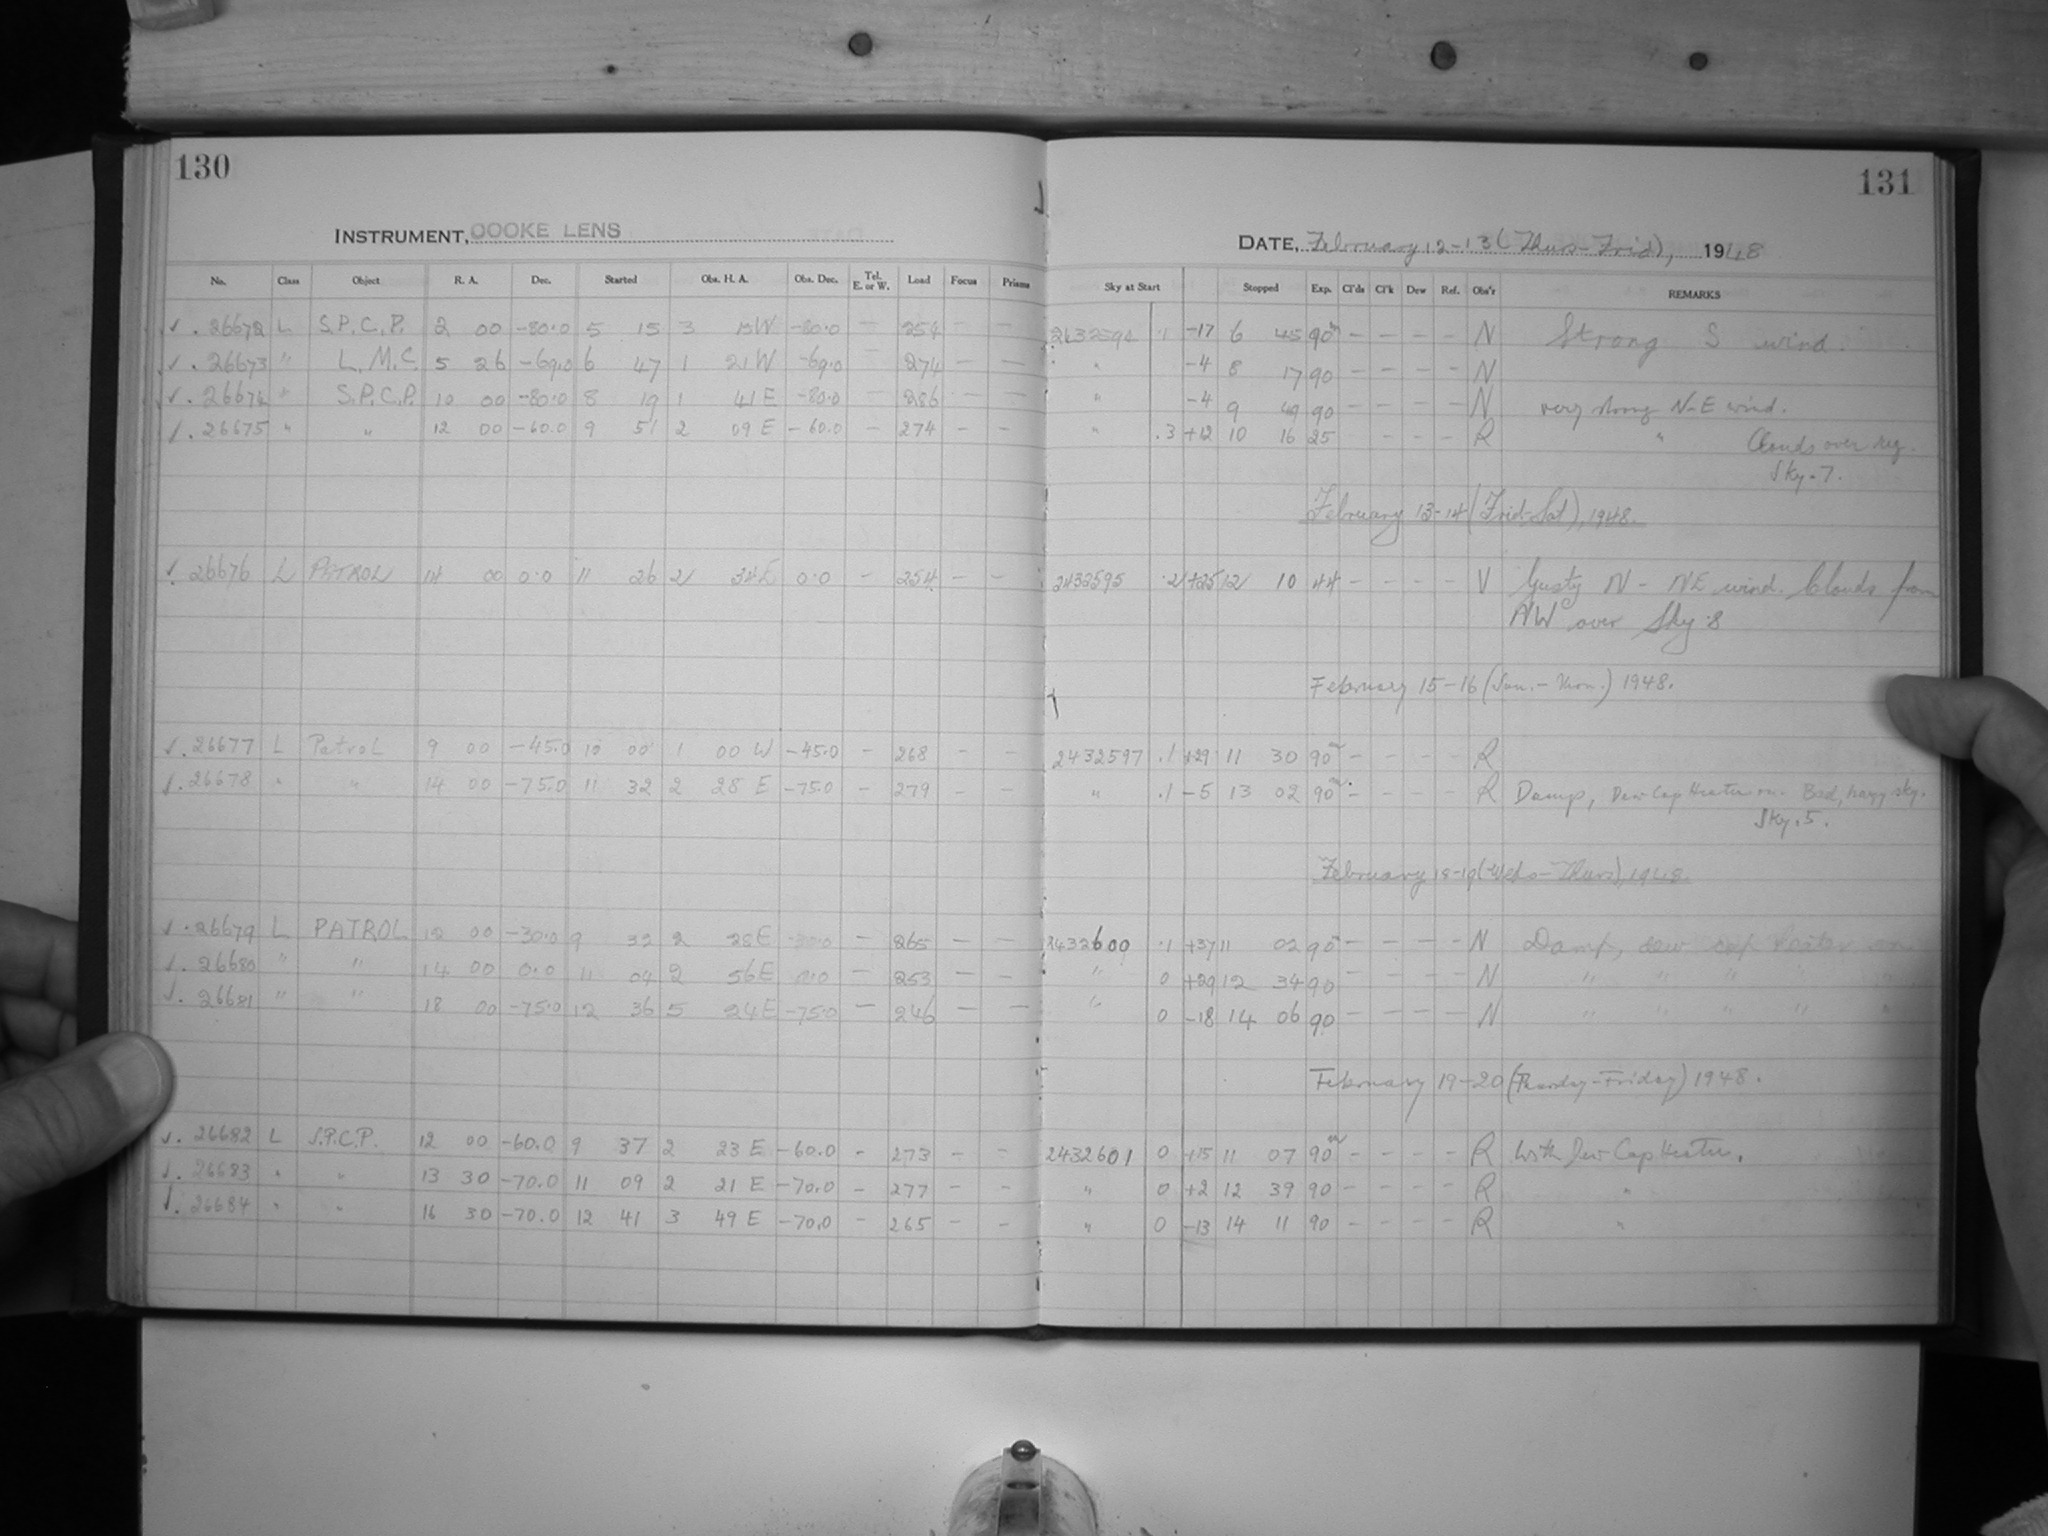 130
INSTRUMENT, COOKE LENS
No. Class Object R. A. Dec. Started Obs. H. A. Obs. Dec. Tel. E. or W. Load Focus Prisms
✓ . 26672 L S.P.C.P. 2 00 -80.0 5 15 3 15 W -80.0 — 254 — —
✓ . 26673 " L.M.C. 5 26 -69.0 6 47 1 21 W -69.0 — 274 — —
✓ . 26674 " S.P.C.P. 10 00 -80.0 8 19 1 41 E -80.0 — 286 — —
✓ . 26675 " " 12 00 -60.0 9 51 2 09 E -60.0 — 274 — —
✓ . 26676 L PATROL 14 00 0.0 11 26 2 34 E 0.0 — 254 — —
✓ . 26677 L Patrol 9 00 -45.0 10 00 1 00 W -45.0 — 268 — —
✓ . 26678 " " 14 00 -75.0 11 32 2 28 E -75.0 — 279 — —
✓ . 26679 L PATROL 12 00 -30.0 9 32 2 28 E -30.0 — 265 — —
✓ . 26680 " " 14 00 0.0 11 04 2 56 E 0.0 — 253 — —
✓ . 26681 " " 18 00 -75.0 12 36 5 24 E -75.0 — 246 — —
✓ . 26682 L S.P.C.P. 12 00 -60.0 9 37 2 23 E -60.0 — 273 — —
✓ . 26683 " " 13 30 -70.0 11 09 2 21 E -70.0 — 277 — —
✓ . 26684 " " 16 30 -70.0 12 41 3 49 E -70.0 — 265 — —
131
DATE, February 12-13 (Thurs-Frid), 1948
Sky at Start Stopped Exp. Cl'ds Cl'k Dew Ref. Obs'r REMARKS
2432594 .1 -17 6 45 90m — — — — N Strong S wind.
" -4 8 17 90 — — — — N
" -4 9 49 90 — — — — N very strong N-E wind.
" .3 +12 10 16 25 — — — R " Clouds over reg.
Sky-7.
February 13-14 (Frid-Sat), 1948.
2432595 .2 +25 12 10 44 — — — — V Gusty N - NE wind. Clouds from
NW over Sky .8
February 15-16 (Sun.-Mon.) 1948.
2432597 .1 +29 11 30 90m — — — — R
" .1 -5 13 02 90m — — — — R Damp, Dew Cap Heater on. Bad, hazy sky.
Sky .5.
February 18-19 (Weds-Thurs), 1948.
2432600 .1 +37 11 02 90 — — — — N Damp, dew cap heater on
" 0 +29 12 34 90 — — — — N " " " " "
" 0 -18 14 06 90 — — — — N " " " " "
February 19-20 (Thursday-Friday) 1948.
2432601 0 +15 11 07 90m — — — — R With Dew Cap Heater.
" 0 +2 12 39 90 — — — — R "
" 0 -13 14 11 90 — — — — R "